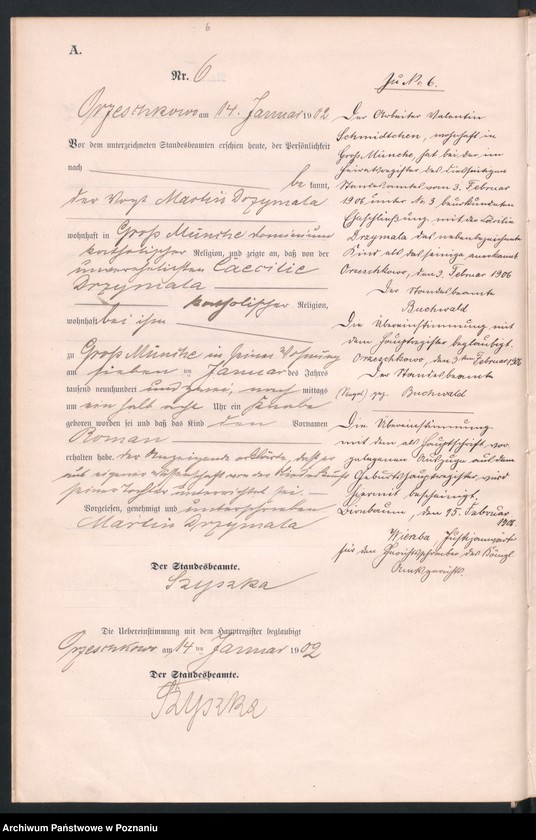 6
A.
Nr. 6
Orzeschkowo am 14. Januar 1902
Vor dem unterzeichneten Standesbeamten erschien heute, der Persönlichkeit
nach
be kannt,
der Vogt Martin Drzymala
wohnhaft in Groß Münche Dominium
katholischer Religion, und zeigte an, daß von der
unverehelichten Caecilie
Drzymala
katholischer Religion,
wohnhaft bei ihm
zu Groß Münche in seiner Wohnung
am sieben ten Januar des Jahres
tausend neunhundert und zwei, nach mittags
um ein halb acht Uhr ein Knabe
geboren worden sei und daß das Kind den Vornamen
Roman
erhalten habe. Der Anzeigende erklärte, daß er
aus eigener Wissenschaft von der Niederkunft
seiner Tochter unterrichtet sei.
Vorgelesen, genehmigt und unterschrieben
Martin Drzymala
Der Standesbeamte.
Szyszka
Die Uebereinstimmung mit dem Hauptregister beglaubigt
Orzeschkowo am 14 ten Januar 1902
Der Standesbeamte.
Szyszka
Zu Nr. 6.
Der Arbeiter Valentin
Schmidtchen, wohnhaft in
Groß Münche, hat bei der im
Heiratsregister des diesseitigen
Standesamtes vom 3. Februar
1906 unter Nr. 3 beurkundeten
Eheschließung mit der Cäcilie
Drzymala das nebenbezeichnete
Kind als das seinige anerkannt
Orzeschkowo, den 3. Februar 1906
Der Standesbeamte
Buchwald
Die Übereinstimmung mit
dem Hauptregister beglaubigt.
Orzeschkowo, den 3ten Februar 1906
Der Standesbeamte
(Siegel) gez. Buchwald
Die Übereinstimmung
mit dem als Hauptschrift vor
gelegenen Auszuge aus dem
Geburtshauptregister wird
hiermit bescheinigt.
Birnbaum, den 15. Februar
1906.
Justizanwärter
für den Gerichtsschreiber des Königl.
Amtsgerichts.
Archiwum Państwowe w Poznaniu